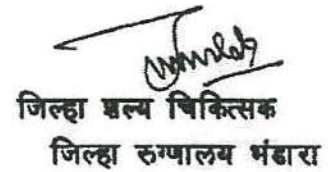 जिल्हा शल्य चिकित्सक
जिल्हा रुग्णालय भंडारा